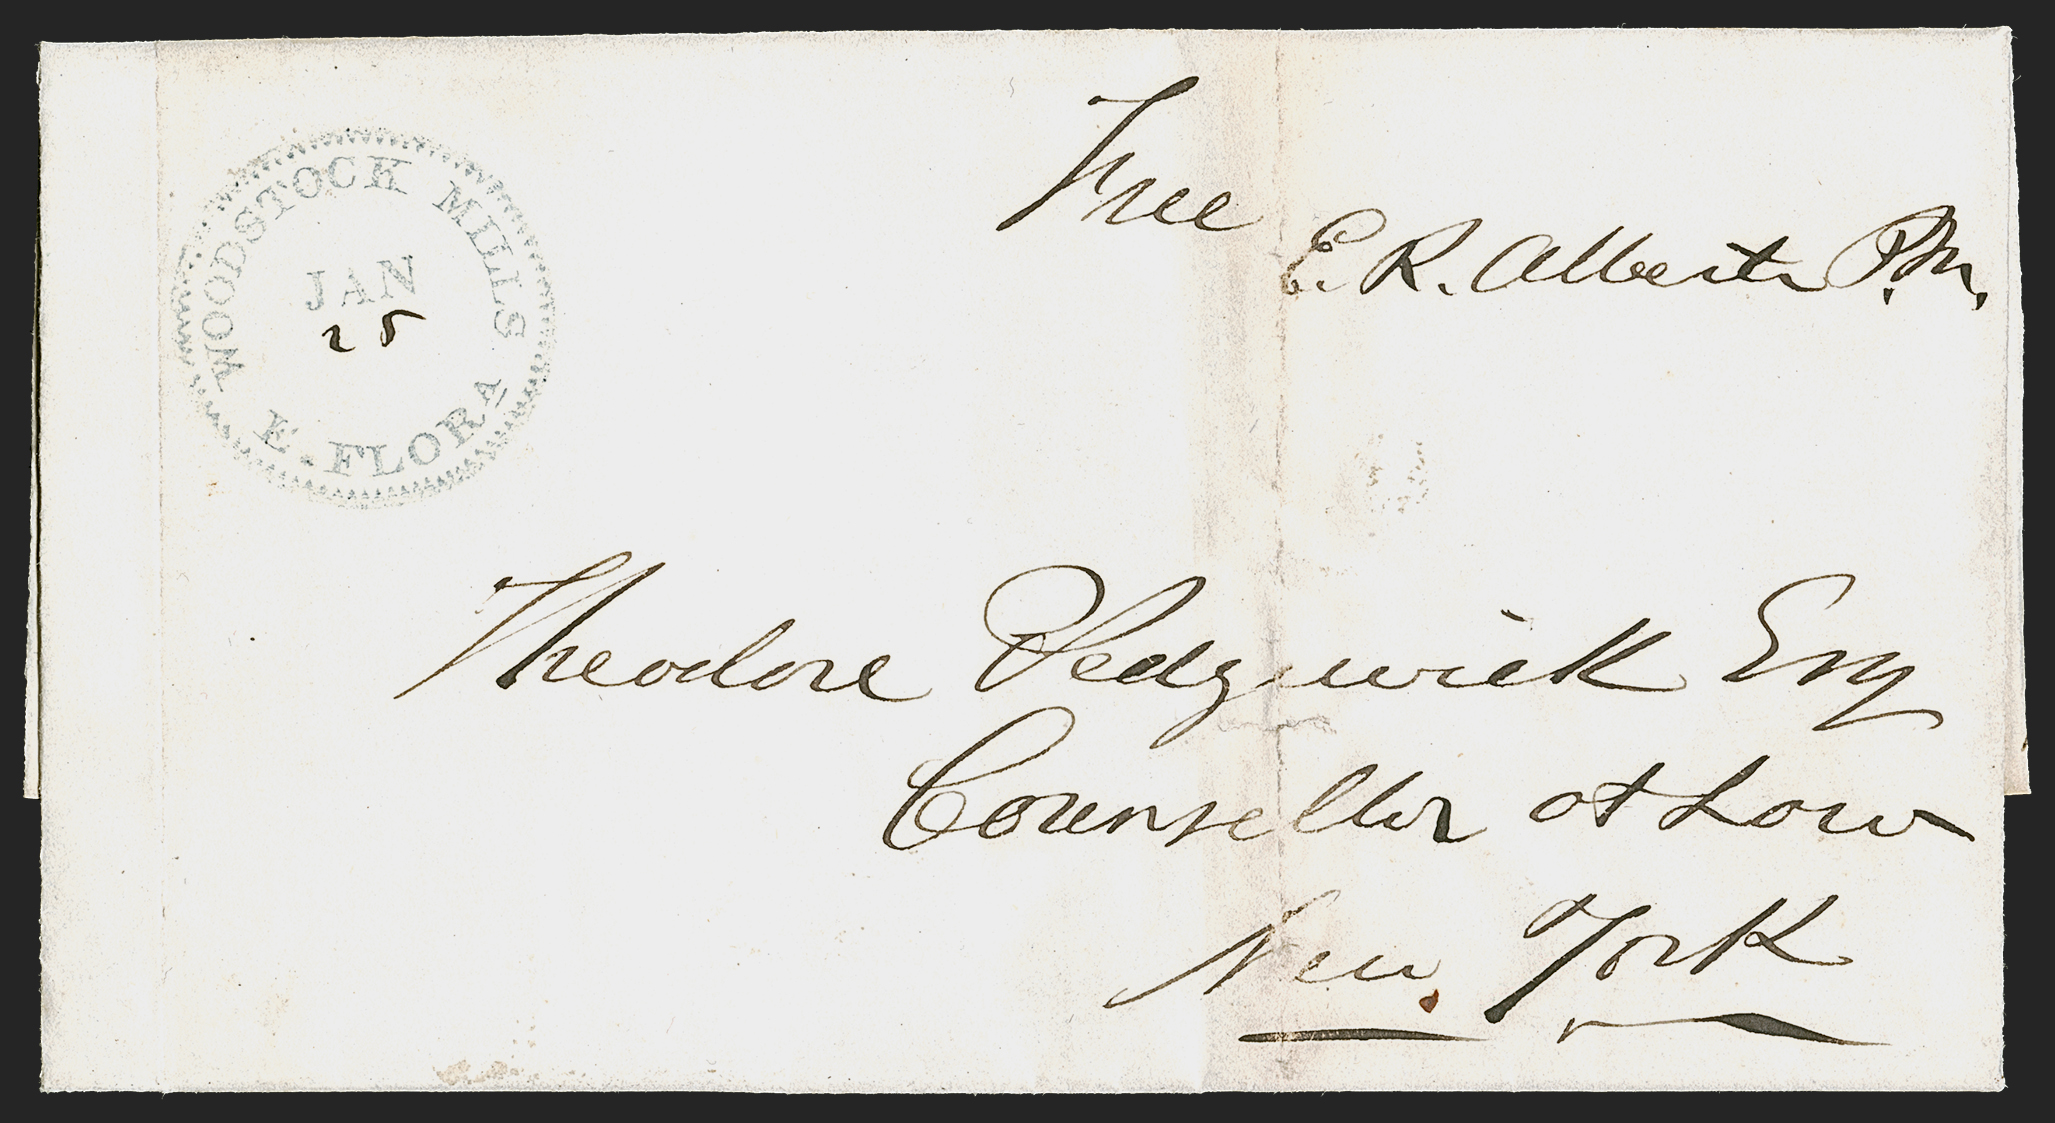 WOODSTOCK MILLS
JAN
25
E. FLORA
Free
E. R. Alberti P.M.
Theodore Sedgwick Esq
Counsellor at Law
New York